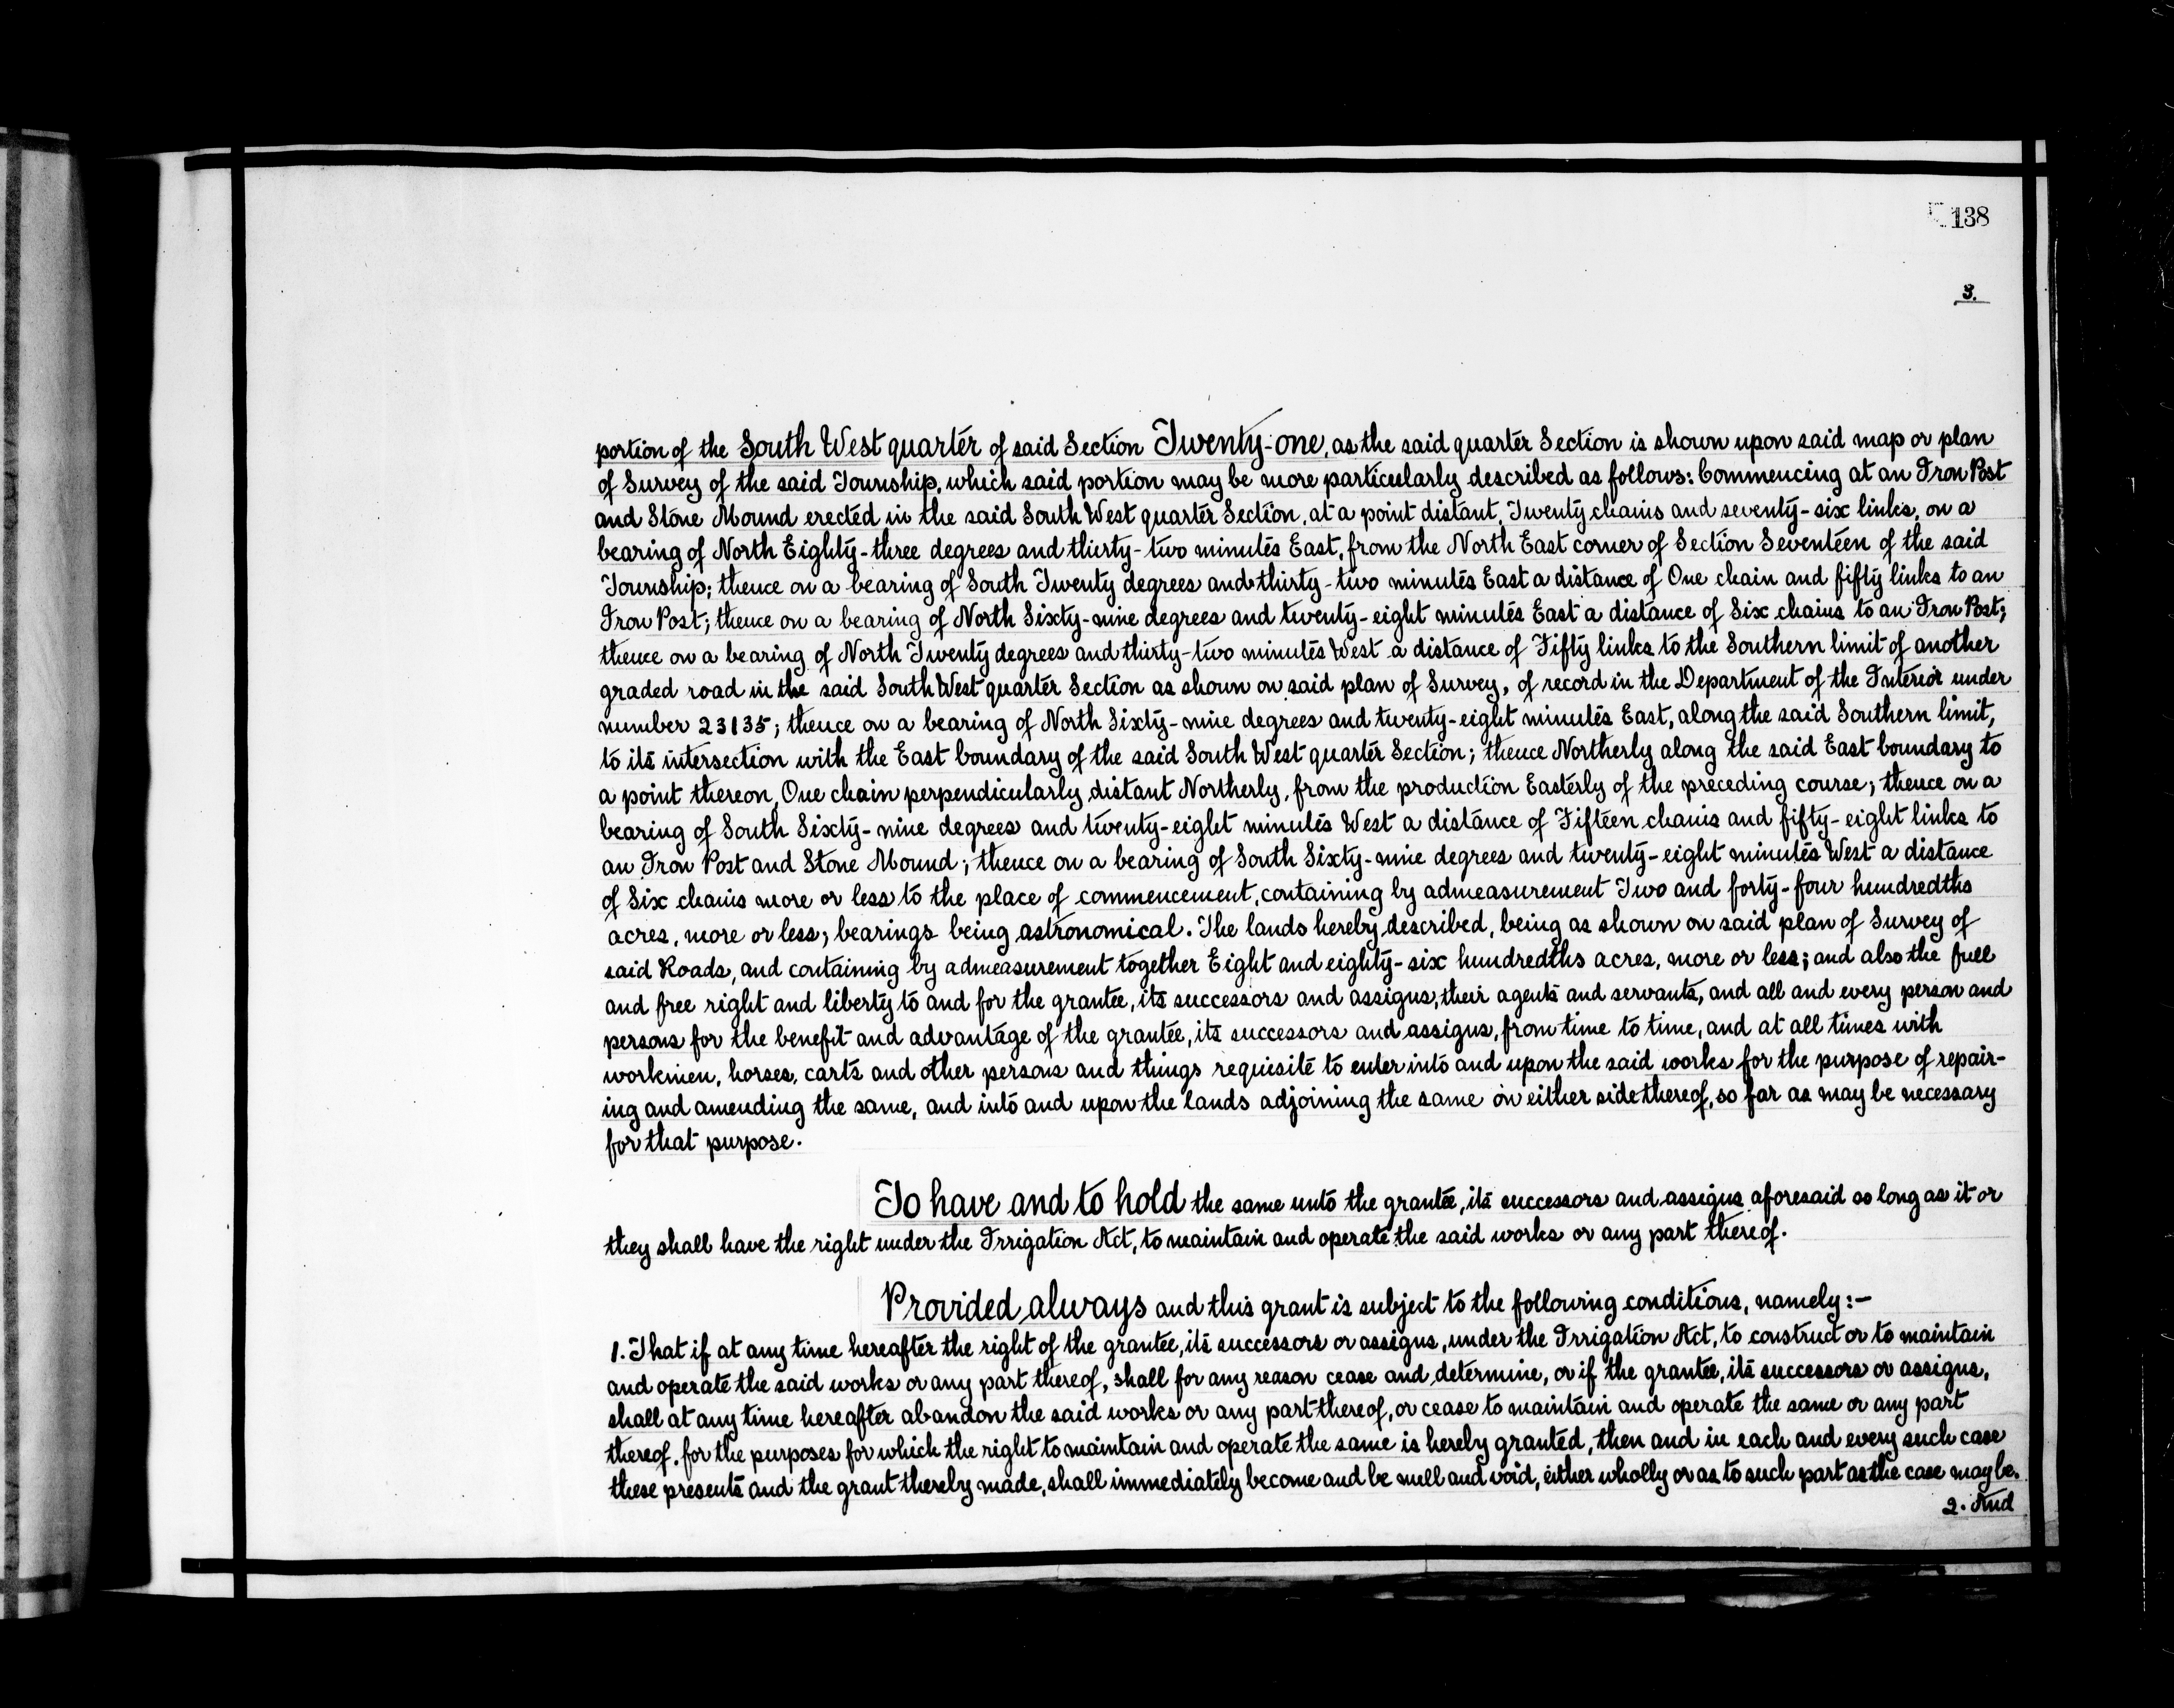 138
3.
portion of the South West quarter of said Section Twenty-one, as the said quarter Section is shown upon said map or plan
of Survey of the said Township, which said portion may be more particularly described as follows: Commencing at an Iron Post
and Stone Mound erected in the said South West quarter Section, at a point distant, Twenty chains and seventy-six links, on a
bearing of North Eighty-three degrees and thirty-two minutes East, from the North East corner of Section Seventeen of the said
Township; thence on a bearing of South Twenty degrees and thirty-two minutes East a distance of One chain and fifty links to an
Iron Post; thence on a bearing of North Sixty-nine degrees and twenty-eight minutes East a distance of Six chains to an Iron Post;
thence on a bearing of North Twenty degrees and thirty-two minutes West a distance of Fifty links to the Southern limit of another
graded road in the said South West quarter Section as shown on said plan of Survey, of record in the Department of the Interior under
number 23135; thence on a bearing of North Sixty-nine degrees and twenty-eight minutes East, along the said Southern limit,
to its intersection with the East boundary of the said South West quarter Section; thence Northerly along the said East boundary to
a point thereon, One chain perpendicularly distant Northerly, from the production Easterly of the preceding course; thence on a
bearing of South Sixty-nine degrees and twenty-eight minutes West a distance of Fifteen chains and fifty-eight links to
an Iron Post and Stone Mound; thence on a bearing of South Sixty-nine degrees and twenty-eight minutes West a distance
of Six chains more or less to the place of commencement, containing by admeasurement Two and forty-four hundredths
acres, more or less; bearings being astronomical. The lands hereby described, being as shown on said plan of Survey of
said Roads, and containing by admeasurement together Eight and eighty-six hundredths acres, more or less; and also the full
and free right and liberty to and for the grantee, its successors and assigns, their agents and servants, and all and every person and
persons for the benefit and advantage of the grantee, its successors and assigns, from time to time, and at all times with
workmen, horses, carts and other persons and things requisite to enter into and upon the said works for the purpose of repair-
ing and amending the same, and into and upon the lands adjoining the same on either side thereof, so far as may be necessary
for that purpose.
To have and to hold the same unto the grantee, its successors and assigns aforesaid so long as it or
they shall have the right under the Irrigation Act, to maintain and operate the said works or any part thereof.
Provided always and this grant is subject to the following conditions, namely:—
1. That if at any time hereafter the right of the grantee, its successors or assigns, under the Irrigation Act, to construct or to maintain
and operate the said works or any part thereof, shall for any reason cease and determine, or if the grantee, its successors or assigns,
shall at any time hereafter abandon the said works or any part thereof, or cease to maintain and operate the same or any part
thereof, for the purposes for which the right to maintain and operate the same is hereby granted, then and in each and every such case
these presents and the grant thereby made, shall immediately become and be null and void, either wholly or as to such part as the case may be.
2. And